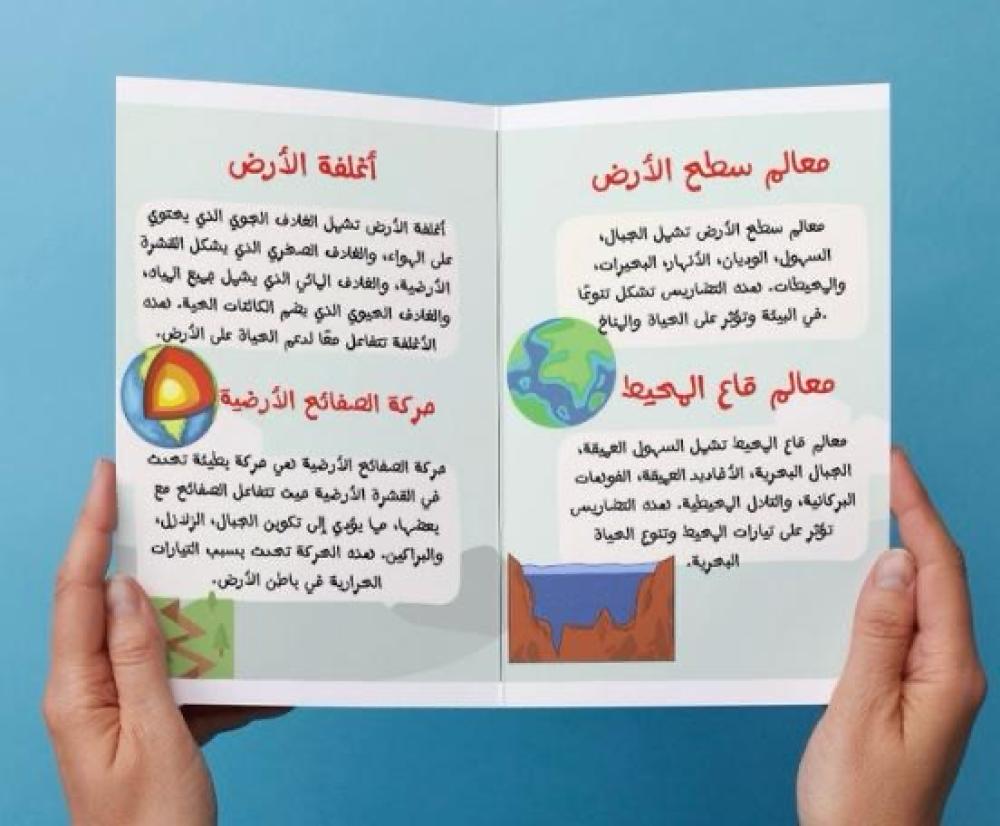 معالم سطح الأرض
معالم سطح الأرض تشمل الجبال،
السهول، الوديان، الأنهار، البحيرات،
والمحيطات. هذه التضاريس تشكل تنوعًا
.في البيئة وتؤثر على الحياة والمناخ
معالم قاع المحيط
معالم قاع المحيط تشمل السهول العميقة،
الجبال البحرية، الأخاديد العميقة، الفوهات
البركانية، والتلال المحيطية. هذه التضاريس
تؤثر على تيارات المحيط وتنوع الحياة
البحرية.
أغلفة الأرض
أغلفة الأرض تشمل الغلاف الجوي الذي يحتوي
على الهواء، والغلاف الصخري الذي يشكل القشرة
الأرضية، والغلاف المائي الذي يشمل جميع المياه،
والغلاف الحيوي الذي يضم الكائنات الحية. هذه
الأغلفة تتفاعل معًا لدعم الحياة على الأرض.
حركة الصفائح الأرضية
حركة الصفائح الأرضية هي حركة بطيئة تحدث
في القشرة الأرضية حيث تتفاعل الصفائح مع
بعضها، مما يؤدي إلى تكوين الجبال، الزلازل،
والبراكين. هذه الحركة تحدث بسبب التيارات
الحرارية في باطن الأرض.